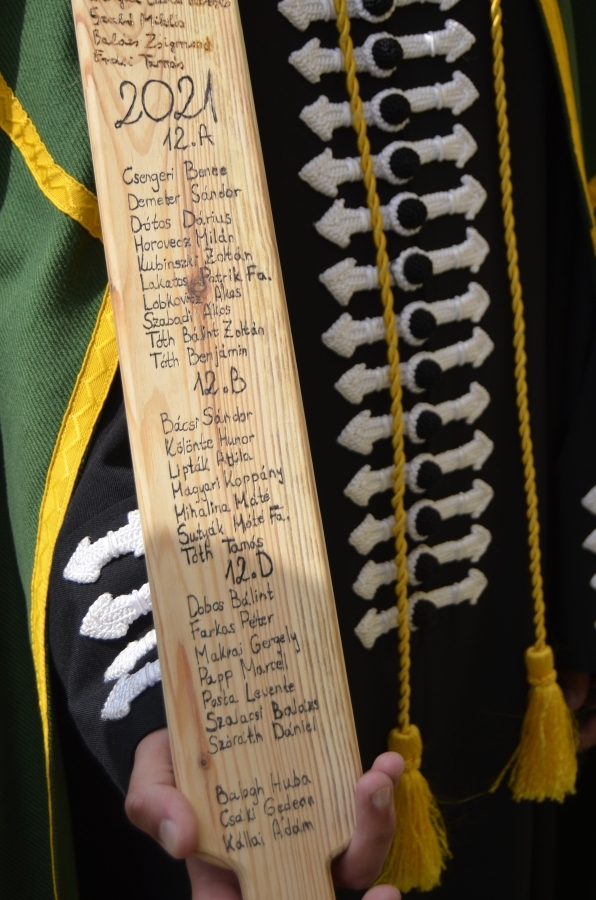 Szabó Miklós
Balázs Zsigmond
Erdei Tamás
2021
12.A
Csengeri Bence
Demeter Sándor
Dótos Dárius
Horovecz Milán
Kubinszki Zoltán
Lakatos Patrik Fa.
Lobkovitz Ákos
Szabadi Ákos
Tóth Bálint Zoltán
Tóth Benjámin
12.B
Bácsi Sándor
Kölönte Hunor
Lipták Attila
Magyari Koppány
Mihalina Máté
Sutyák Máté Fa.
Tóth Tamás
12.D
Dobos Bálint
Farkas Péter
Makrai Gergely
Papp Marcel
Posta Levente
Szalacsi Balázs
Szóráth Dániel
Balogh Huba
Csáki Gedeon
Kállai Ádám